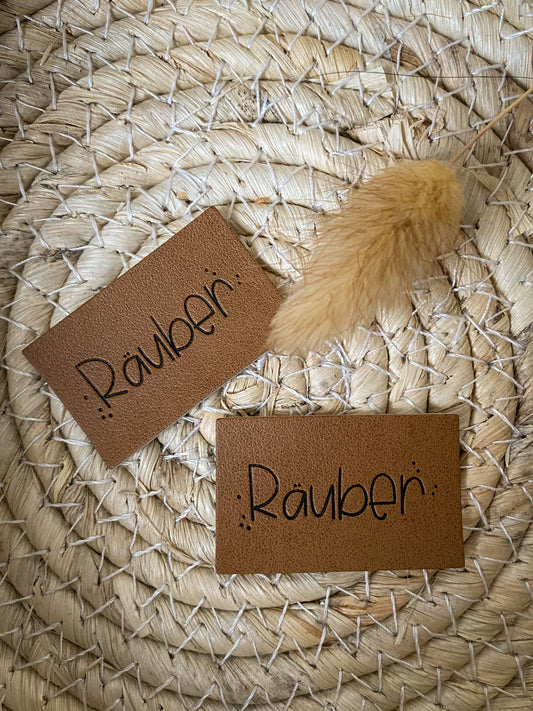 Räuber
Räuber